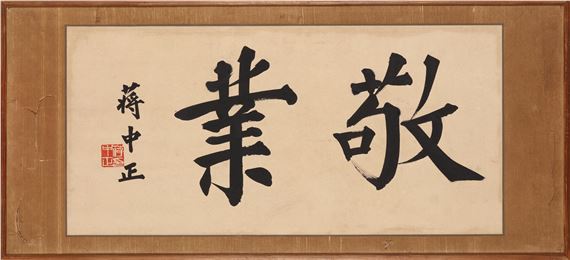 敬業
蔣中正